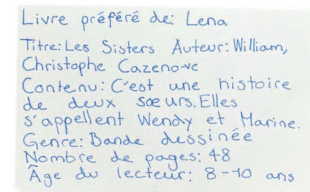 Livre préféré de: Lena
Titre: Les Sisters Auteur: William,
Christophe Cazenove
Contenu: C'est une histoire
de deux sœurs. Elles
s'appellent Wendy et Marine.
Genre: Bande dessinée
Nombre de pages: 48
Âge du lecteur: 8-10 ans